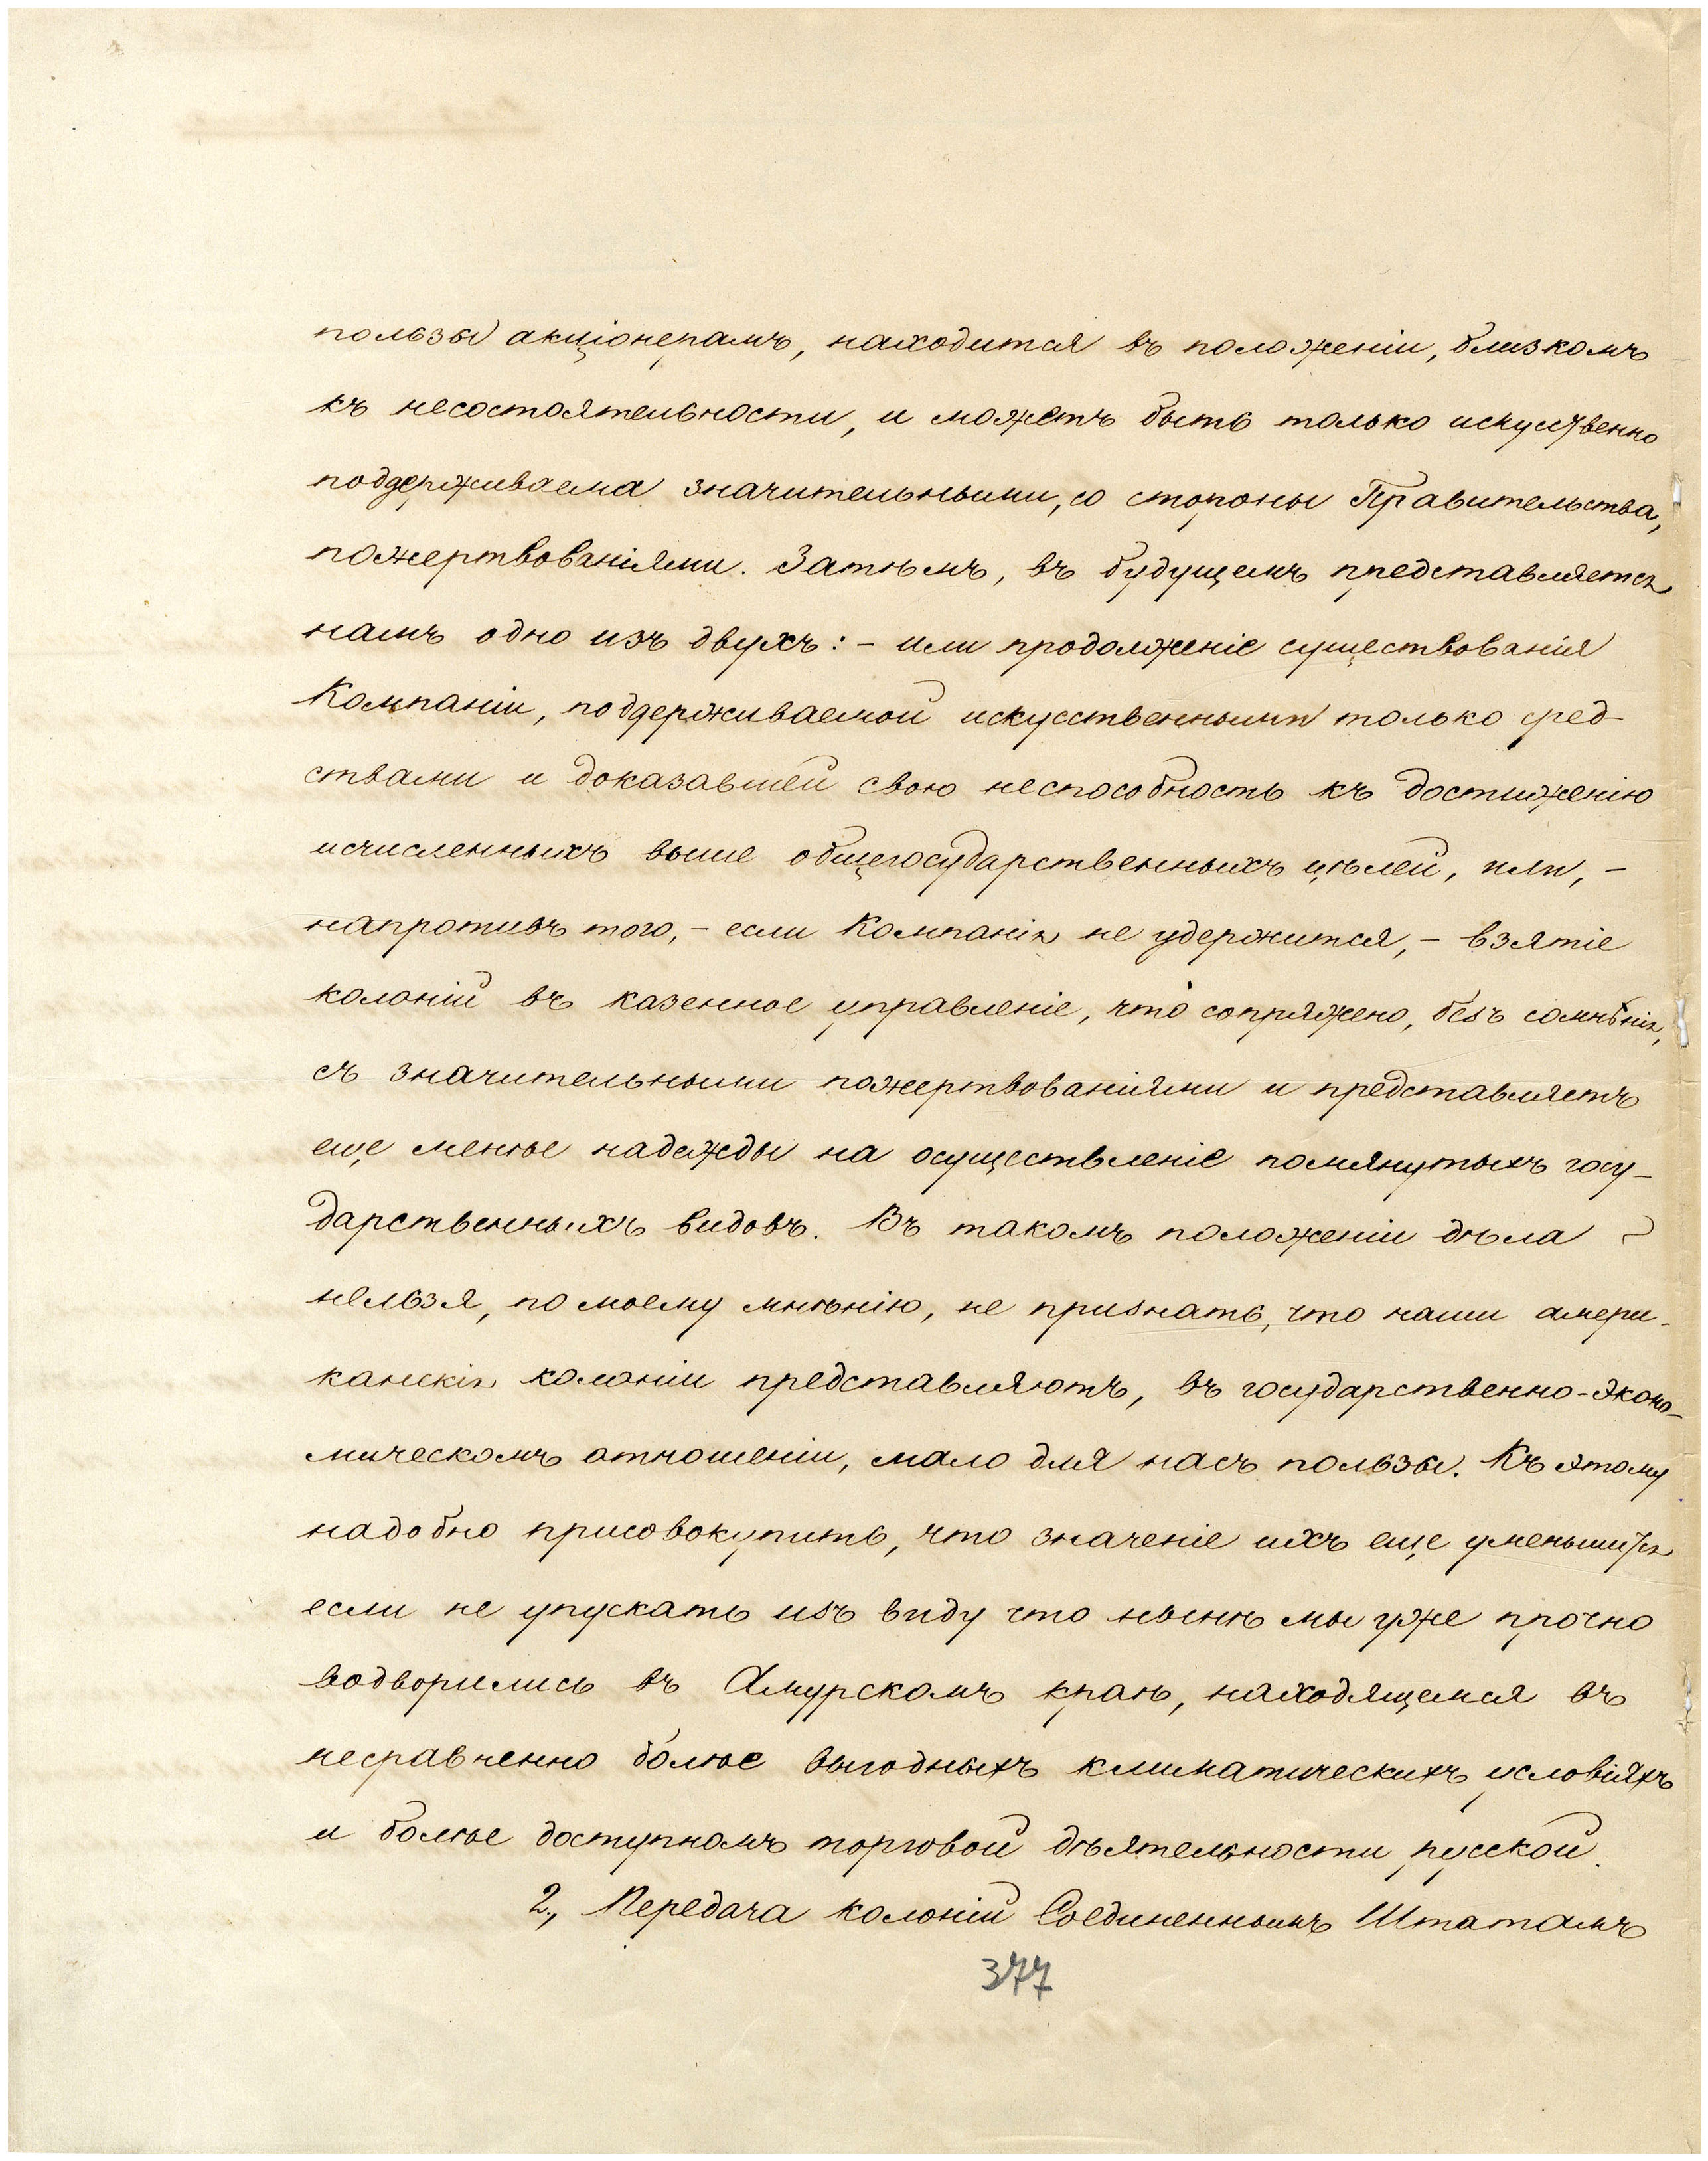 пользы акціонерамъ, находится въ положеніи, близкомъ
къ несостоятельности, и можетъ быть только искуственно
поддерживаема значительными, со стороны Правительства,
пожертвованіями. Затѣмъ, въ будущемъ представляется
намъ одно изъ двухъ: – или продолженіе существованія
Компаніи, поддерживаемой искусственными только сред-
ствами и доказавшей свою неспособность къ достиженію
исчисленныхъ выше общегосударственныхъ цѣлей, или, –
напротивъ того, – если Компанія не удержится, – взятіе
колоній въ казенное управленіе, что сопряжено, безъ сомнѣнія,
съ значительными пожертвованіями и представляетъ
еще менѣе надежды на осуществленіе помянутыхъ госу-
дарственныхъ видовъ. Въ такомъ положеніи дѣла
нельзя, по моему мнѣнію, не признать, что наши амери-
канскія колоніи представляютъ, въ государственно-эконо-
мическомъ отношеніи, мало для насъ пользы. Къ этому
надобно присовокупить, что значеніе ихъ еще уменьшится
если не упускать изъ виду что нынѣ мы уже прочно
водворились въ Амурскомъ краѣ, находящемся въ
несравненно болѣе выгодныхъ климатическихъ условіяхъ
и болѣе доступномъ торговой дѣятельности русской.
2., Передача колоній Соединеннымъ Штатамъ
377